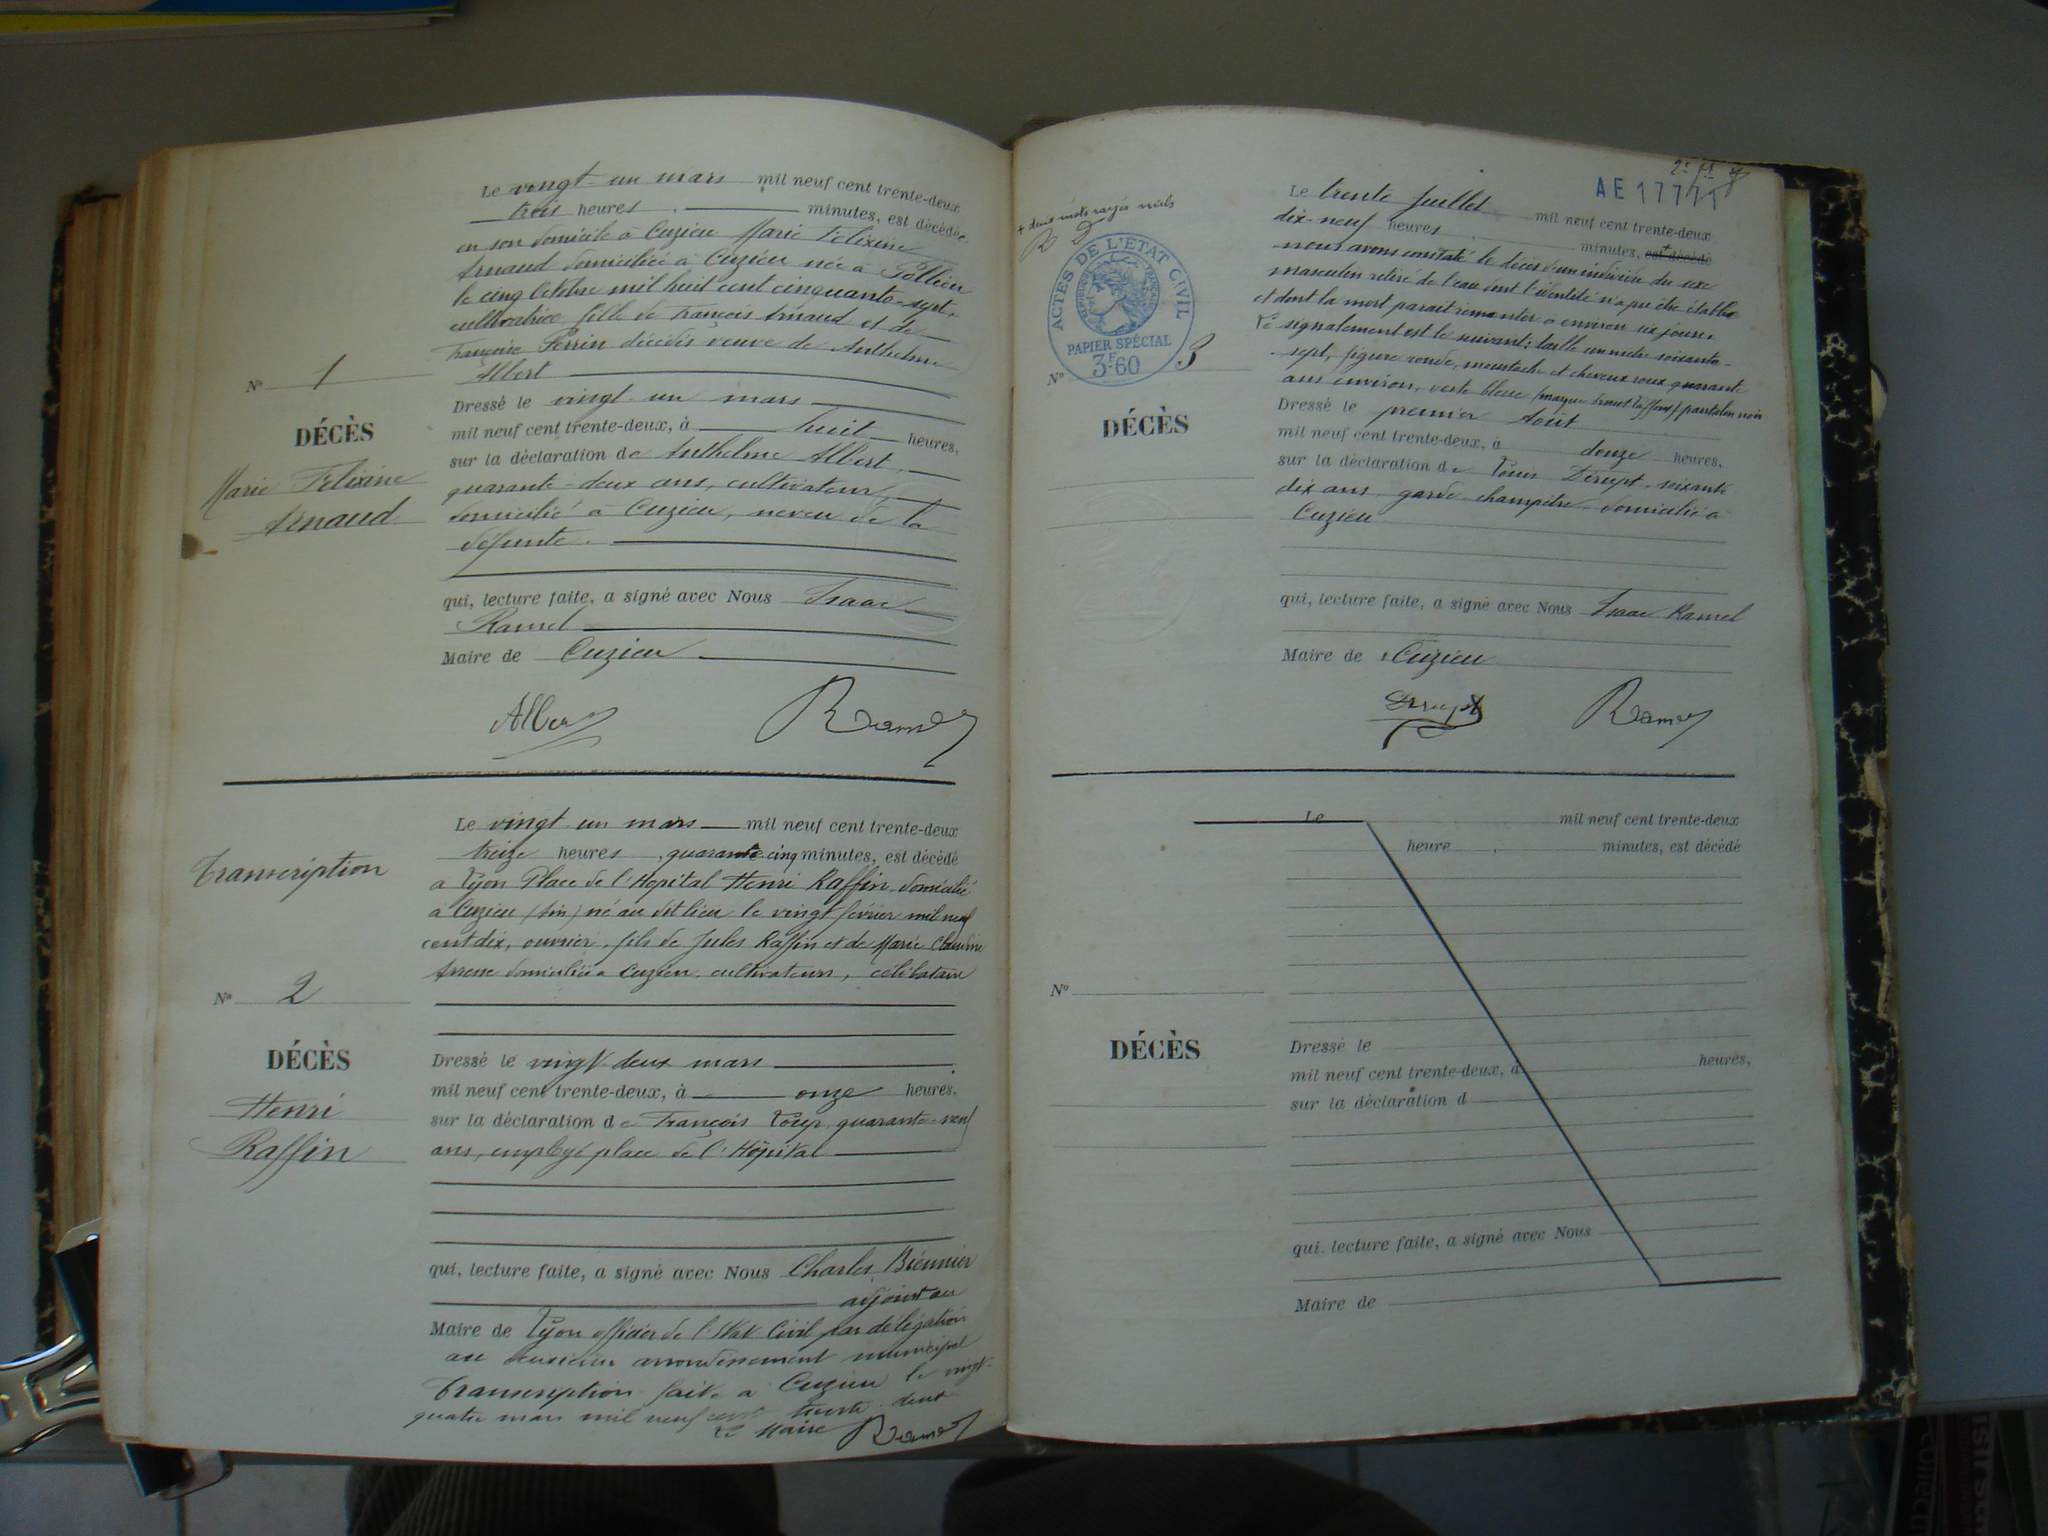 Le vingt-un mars mil neuf cent trente-deux
trois heures minutes, est décédée
en son domicile à Cuzieu Marie Félixine
Arnaud domiciliée à Cuzieu née à Pollieu
le cinq Octobre mil huit cent cinquante-sept,
cultivatrice fille de François Arnaud et de
Françoise Perrin décédés veuve de Anthelme
Albert
No 1
DÉCÈS
Marie Félixine
Arnaud
Dressé le vingt un mars
mil neuf cent trente-deux, à huit heures,
sur la déclaration de Anthelme Albert,
quarante-deux ans, cultivateur,
domicilié à Cuzieu, neveu de la
défunte.
qui, lecture faite, a signé avec Nous Isaac
Ramel
Maire de Cuzieu
Albert Ramel
Transcription
Le vingt un mars mil neuf cent trente-deux
treize heures, quarante cinq minutes, est décédé
à Lyon Place de l'Hôpital Henri Raffin domicilié
à Cuzieu (Ain) né au dit lieu le vingt février mil neuf
cent dix, ouvrier, fils de Jules Raffin et de Marie Claudine
domiciliés à Cuzieu cultivateurs, célibataire
No 2
DÉCÈS
Henri
Raffin
Dressé le vingt-deux mars
mil neuf cent trente-deux, à onze heures,
sur la déclaration de François Loup quarante-neuf
ans, employé place de l'Hôpital
qui, lecture faite, a signé avec Nous Charles
adjoint au
Maire de Lyon officier de l'Etat Civil par délégation
au deuxième arrondissement municipal
Transcription faite à Cuzieu le vingt-
quatre mars mil neuf cent trente-deux
Le Maire Ramel
+ deux mots rayés nuls
R D
ACTES DE L'ETAT CIVIL
PAPIER SPÉCIAL
3F60
AE 17771
Le trente Juillet mil neuf cent trente-deux
dix-neuf heures minutes, est décédé
nous avons constaté le décès d'un individu du sexe
masculin retiré de l'eau dont l'identité n'a pu être établie
et dont la mort parait remonter à environ six jours.
Le signalement est le suivant: taille un mètre soixante-
sept, figure ronde, moustache et cheveux roux quarante
ans environ, veste bleue (marque pantalon noir
No 3
DÉCÈS
Dressé le premier Août
mil neuf cent trente-deux, à douze heures,
sur la déclaration de Louis Dérupt, soixante
dix ans, garde champêtre domicilié à
Cuzieu
qui, lecture faite, a signé avec Nous Isaac Ramel
Maire de Cuzieu
Derupt Ramel
Le mil neuf cent trente-deux
heure minutes, est décédé
No
DÉCÈS
Dressé le
mil neuf cent trente-deux, à heures,
sur la déclaration d
qui, lecture faite, a signé avec Nous
Maire de